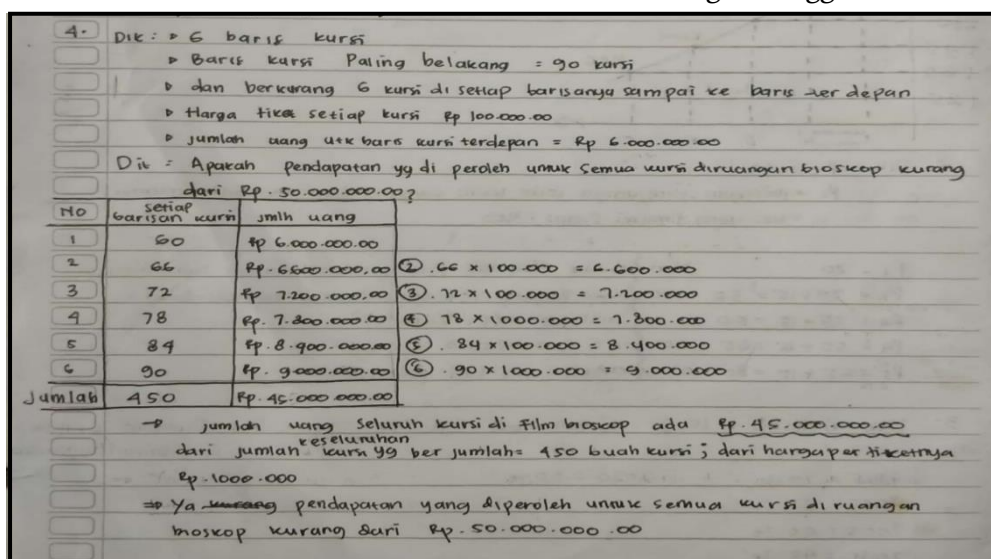 4. Dik : ▷ 6 baris kursi
▷ Baris kursi Paling belakang = 90 kursi
▷ dan berkurang 6 kursi di setiap barisanya sampai ke baris ter depan
▷ Harga tiket setiap kursi Rp 100.000.00
▷ jumlah uang utk baris kursi terdepan = Rp 6.000.000.00
Dit = Apakah pendapatan yg di peroleh untuk semua kursi diruangan bioskop kurang
dari Rp. 50.000.000.00?
No setiap barisan kursi jmlh uang
1 60 Rp 6.000.000.00
2 66 Rp. 6600.000,00 ② .66 x 100.000 = 6.600.000
3 72 Rp 7.200.000,00 ③ .72 x 100.000 = 7.200.000
4 78 Rp. 7.800.000.00 ④ 78 x 1000.000 = 7.800.000
5 84 Rp. 8.400.000.00 ⑤ . 84 x 100.000 = 8.400.000
6 90 Rp. 9.000.000.00 ⑥ .90 x 1000.000 = 9.000.000
Jumlah 450 Rp. 45.000.000.00
→ jumlah uang seluruh kursi di Film bioskop ada Rp. 45.000.000.00
dari jumlah keseluruhan kursi yg ber jumlah = 450 buah kursi ; dari harga per ticketnya
Rp. 1000.000
⇒ Ya kurang pendapatan yang diperoleh untuk semua kursi diruangan
bioskop kurang dari Rp. 50.000.000.00